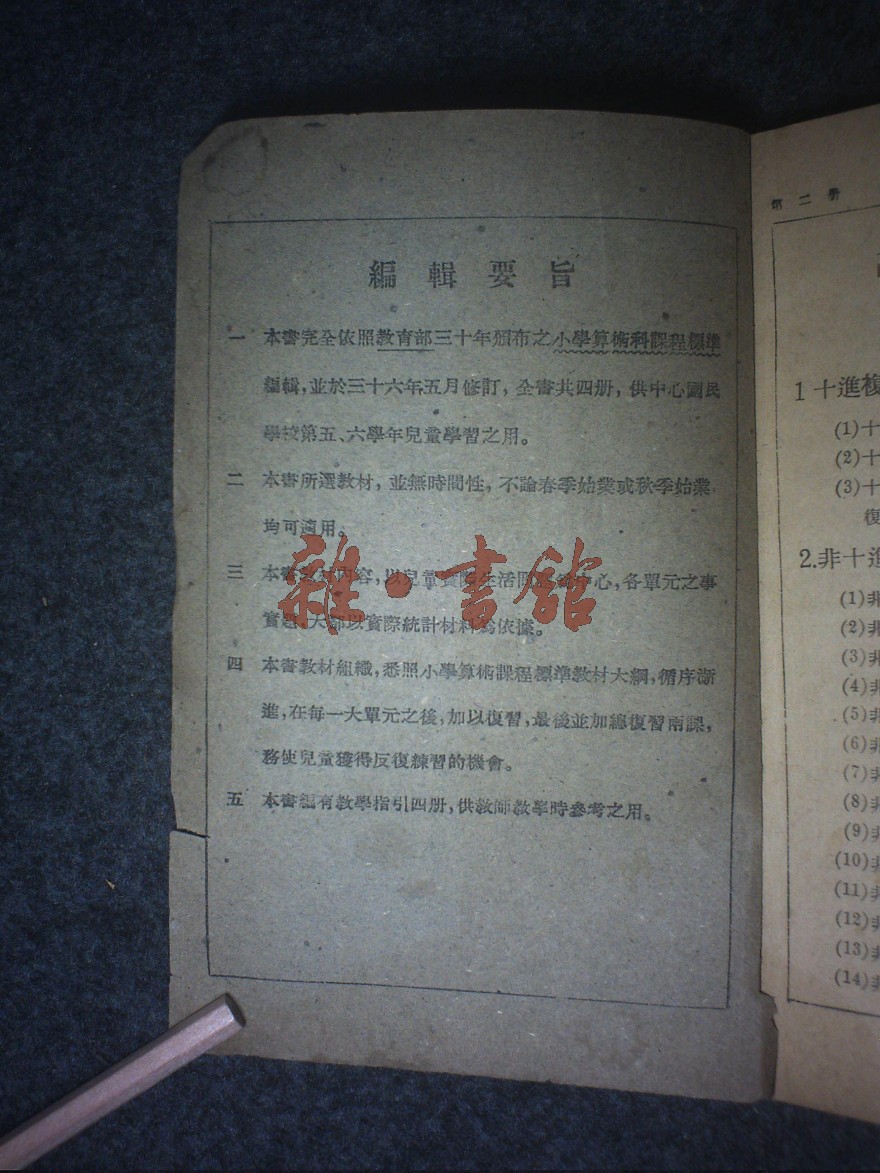 編輯要旨
一 本書完全依照教育部三十年頒布之小學算術科課程標準
編輯，並於三十六年五月修訂，全書共四册，供中心國民
學校第五、六學年兒童學習之用。
二 本書所選教材，並無時間性，不論春季始業或秋季始業，
均可適用。
三 本書內容，以兒童實際生活問題為中心，各單元之事
實題，大都以實際統計材料為依據。
四 本書教材組織，悉照小學算術課程標準教材大綱，循序漸
進，在每一大單元之後，加以復習，最後並加總復習兩課，
務使兒童獲得反復練習的機會。
五 本書編有教學指引四册，供教師教學時參考之用。
雜·書館
第二册
1 十進複
(1)十
(2)十
(3)十
復
2.非十進
(1)非
(2)非
(3)非
(4)非
(5)非
(6)非
(7)非
(8)非
(9)非
(10)非
(11)非
(12)非
(13)非
(14)非